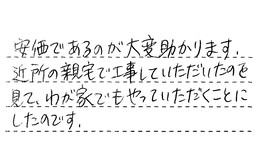 安価であるのが大変助かります.
近所の親宅で工事していただいたのを
見て、わが家でもやっていただくことに
したのです.